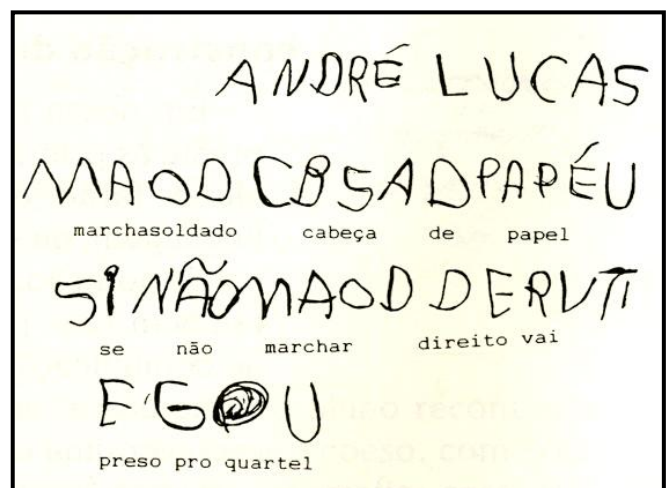 ANDRÉ LUCAS
MAOD CBSADPAPÉU
marchasoldado cabeça de papel
SINÃOMAOD DERUTI
se não marchar direito vai
EGU
preso pro quartel